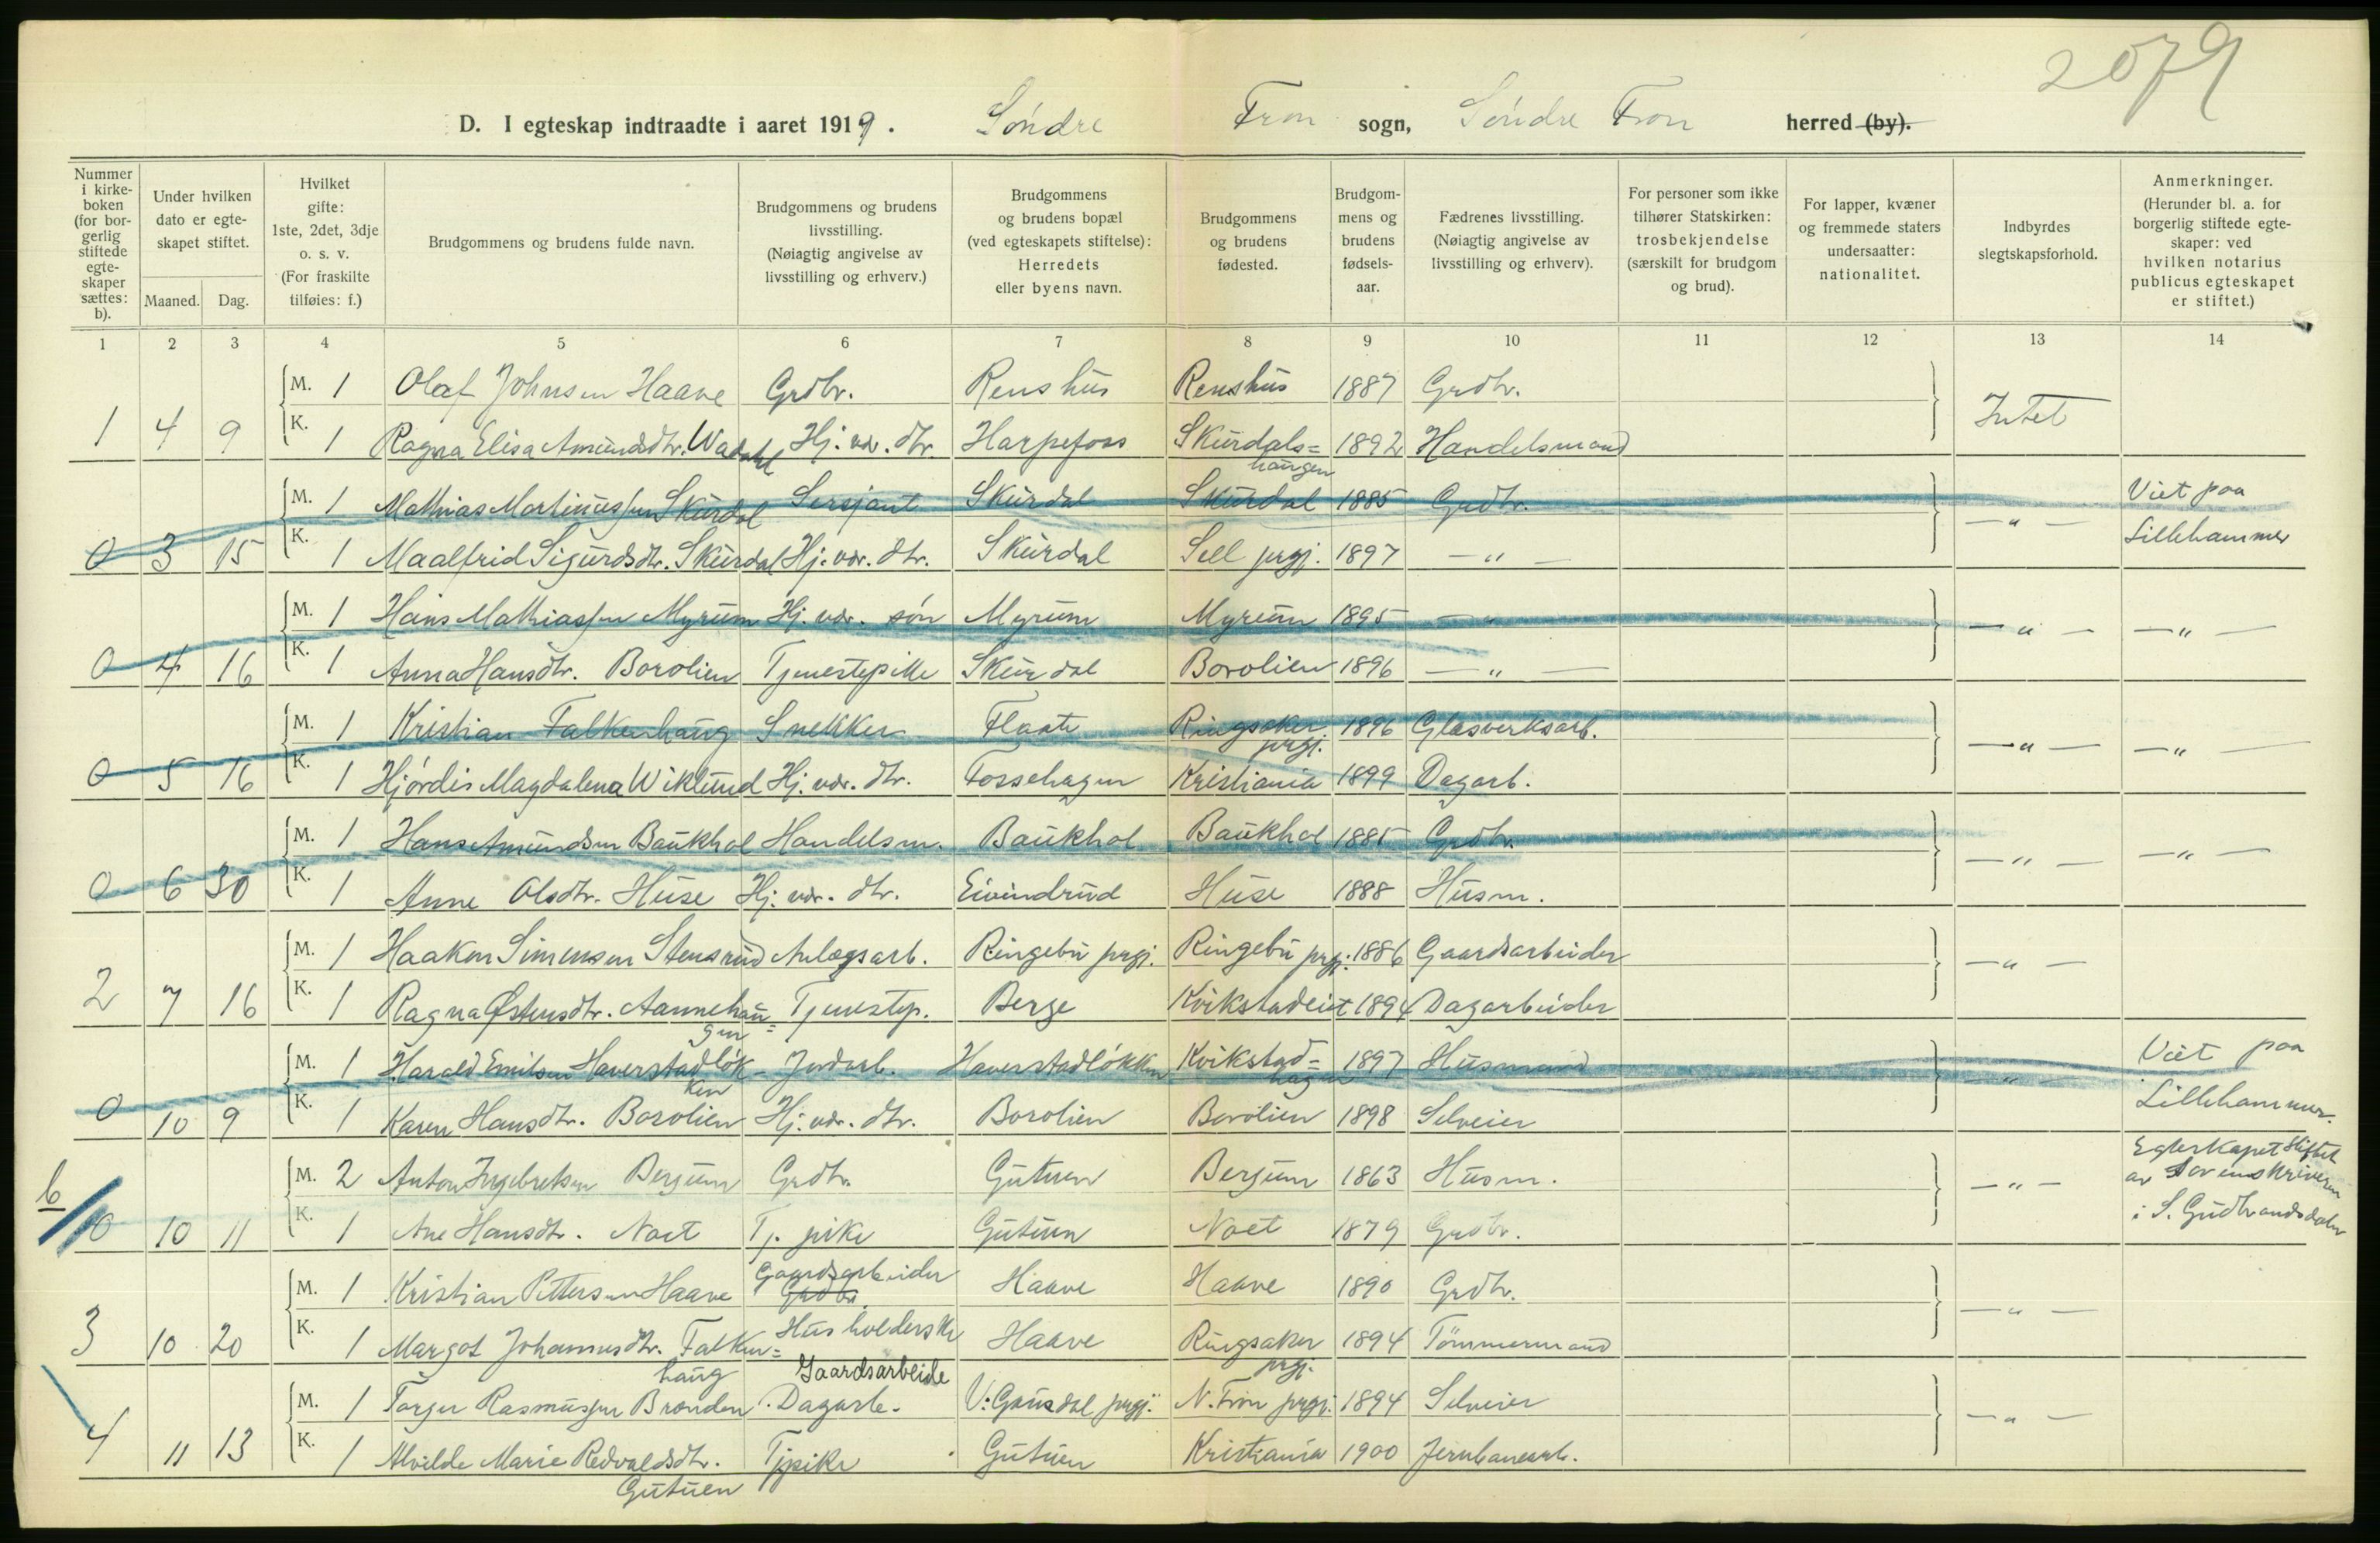 2079
D. I egteskap indtraadte i aaret 1919. Søndre Fron sogn, Søndre Fron herred (by).
Nummer i kirke-boken (for bor-gerlig stiftede egte-skaper sættes: b).
Under hvilken dato er egte-skapet stiftet.
Maaned. Dag.
Hvilket gifte: 1ste, 2det, 3dje o. s. v. (For fraskilte tilføies: f.)
Brudgommens og brudens fulde navn.
Brudgommens og brudens livsstilling. (Nøiagtig angivelse av livsstilling og erhverv.)
Brudgommens og brudens bopæl (ved egteskapets stiftelse): Herredets eller byens navn.
Brudgommens og brudens fødested.
Brudgom-mens og brudens fødsels-aar.
Fædrenes livsstilling. (Nøiagtig angivelse av livsstilling og erhverv).
For personer som ikke tilhører Statskirken: trosbekjendelse (særskilt for brudgom og brud).
For lapper, kvæner og fremmede staters undersaatter: nationalitet.
Indbyrdes slegtskapsforhold.
Anmerkninger. (Herunder bl. a. for borgerlig stiftede egte-skaper: ved hvilken notarius publicus egteskapet er stiftet.)
1 2 3 4 5 6 7 8 9 10 11 12 13 14
M. 1 Olaf Johnsen Haave Grdbr. Renshus Renshus 1887 Grdbr.
1 4 9 K. 1 Ragna Elisa Amundsdtr. Wadahl Hj. vær. dtr. Harpefoss Skurdals=haugen 1892 Handelsmand Intet
M. 1 Mathias Martinussen Skurdal Sersjant Skurdal Skurdal 1885 Grdbr. Viet paa
0 3 15 K. 1 Maalfrid Sigurdsdtr. Skurdal Hj. vær. dtr. Skurdal Sell prgj. 1897 —"— —"— Lillehammer
M. 1 Hans Mathiassen Myrum Hj. vær. søn Myrum Myrum 1895 —"—
0 4 16 K. 1 Anna Hansdtr. Borolien Tjenestepike Skurdal Borolien 1896 —"— —"— —"—
M. 1 Kristian Falkenhaug Snekker Flaate Ringsaker prgj. 1896 Glasverksarb.
0 5 16 K. 1 Hjørdis Magdalena Wiklund Hj. vær. dtr. Fossehagen Kristiania 1899 Dagarb. —"— —"—
M. 1 Hans Amundsen Baukhol Handelsm. Baukhol Baukhol 1885 Grdbr.
0 6 30 K. 1 Anne Olsdtr. Huse Hj. vær. dtr. Eivindrud Huse 1888 Husm. —"— —"—
M. 1 Haakon Simensen Stensrud Anlægsarb. Ringebu prgj. Ringebu prgj. 1886 Gaardsarbeider
2 7 16 K. 1 Ragna Østensdtr. Aannehau=gen Tjenestep. Berge Kvikstadeiet 1894 Dagarbeider —"—
M. 1 Harald Emilsen Haverstadløkken Jordarb. Haverstadløkken Kvikstad=hagen 1897 Husmand Viet paa
0 10 9 K. 1 Karen Hansdtr. Borolien Hj. vær. dtr. Borolien Borolien 1898 Selveier —"— Lillehammer.
b M. 2 Anton Ingebretsen Bergum Grdbr. Gutuen Bergum 1863 Husm. Egteskapet stiftet
0 10 11 K. 1 Ane Hansdtr. Noet Tj. pike Gutuen Noet 1879 Grdbr. —"— av Sorenskriveren i S. Gudbrandsdalen
M. 1 Kristian Pettersen Haave Gaardsarbeider Grdbr. Haave Haave 1890 Grdbr.
3 10 20 K. 1 Margot Johannesdtr. Falken=haug Husholderske Haave Ringsaker prgj. 1894 Tømmermand —"—
M. 1 Torger Rasmussen Brænden Gaardsarbeide Dagarb. V. Gausdal prgj. N. Fron prgj. 1894 Selveier
4 11 13 K. 1 Alvilde Marie Redvaldsdtr. Gutuen Tjpike Gutuen Kristiania 1900 Jernbanearb. —"—